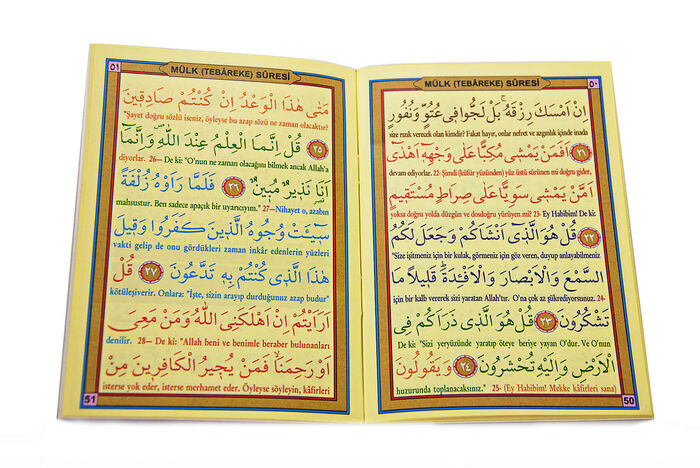 ٥٠
MÜLK (TEBÂREKE) SÛRESİ
اِنْ اَمْسَكَ رِزْقَهُۚ بَلْ لَجُّوا فٖى عُتُوٍّ وَنُفُورٍ
size rızık verecek olan kimdir? Fakat hayır, onlar nefret ve azgınlık içinde inada
﴿٢١﴾ اَفَمَنْ يَمْشٖى مُكِبًّا عَلٰى وَجْهِهٖٓ اَهْدٰٓى
devam ediyorlar. 22-Şimdi (küfür yüzünden) yüz üstü sürünen mi doğru gider,
اَمَّنْ يَمْشٖى سَوِيًّا عَلٰى صِرَاطٍ مُسْتَقٖيمٍ
yoksa doğru yolda düzgün ve dosdoğru yürüyen mi? 23- Ey Habibim! De ki:
﴿٢٢﴾ قُلْ هُوَ الَّذٖٓى اَنْشَاَكُمْ وَجَعَلَ لَكُمُ
"Size işitmeniz için bir kulak, görmeniz için göz veren, duyup anlayabilmeniz
السَّمْعَ وَالْاَبْصَارَ وَالْاَفْـِٔدَةَؕ قَلٖيلًا مَا
için bir kalb vererek sizi yaratan Allah'tır. O'na çok az şükrediyorsunuz. 24-
تَشْكُرُونَ ﴿٢٣﴾ قُلْ هُوَ الَّذٖى ذَرَاَكُمْ فِى
De ki: "Sizi yeryüzünde yaratıp öteye beriye yayan O'dur. Ve O'nun
الْاَرْضِ وَاِلَيْهِ تُحْشَرُونَ ﴿٢٤﴾ وَيَقُولُونَ
huzurunda toplanacaksınız." 25- (Ey Habibim! Mekke kâfirleri sana)
50
٥١
MÜLK (TEBÂREKE) SÛRESİ
مَتٰى هٰذَا الْوَعْدُ اِنْ كُنْتُمْ صَادِقٖينَ
"Şayet doğru sözlü iseniz, öyleyse bu azap sözü ne zaman olacaktır?
﴿٢٥﴾ قُلْ اِنَّمَا الْعِلْمُ عِنْدَ اللّٰهِ وَاِنَّمَٓا
diyorlar. 26— De ki: "O'nun ne zaman olacağını bilmek ancak Allah'a
اَنَا۬ نَذٖيرٌ مُبٖينٌ ﴿٢٦﴾ فَلَمَّا رَاَوْهُ زُلْفَةً
mahsustur. Ben sadece apaçık bir uyarıcıyım." 27—Nihayet o, azabın
سٖٓيـَٔتْ وُجُوهُ الَّذٖينَ كَفَرُوا وَقٖيلَ
vakti gelip de onu gördükleri zaman inkâr edenlerin yüzleri
هٰذَا الَّذٖى كُنْتُمْ بِهٖ تَدَّعُونَ ﴿٢٧﴾ قُلْ
kötüleşiverir. Onlara: "İşte, sizin arayıp durduğunuz azap budur"
اَرَاَيْتُمْ اِنْ اَهْلَكَنِىَ اللّٰهُ وَمَنْ مَعِىَ
denilir. 28— De ki: "Allah beni ve benimle beraber bulunanları
اَوْ رَحِمَنَا فَمَنْ يُجٖيرُ الْكَافِرٖينَ مِنْ
isterse yok eder, isterse merhamet eder. Öyleyse söyleyin, kâfirleri
51